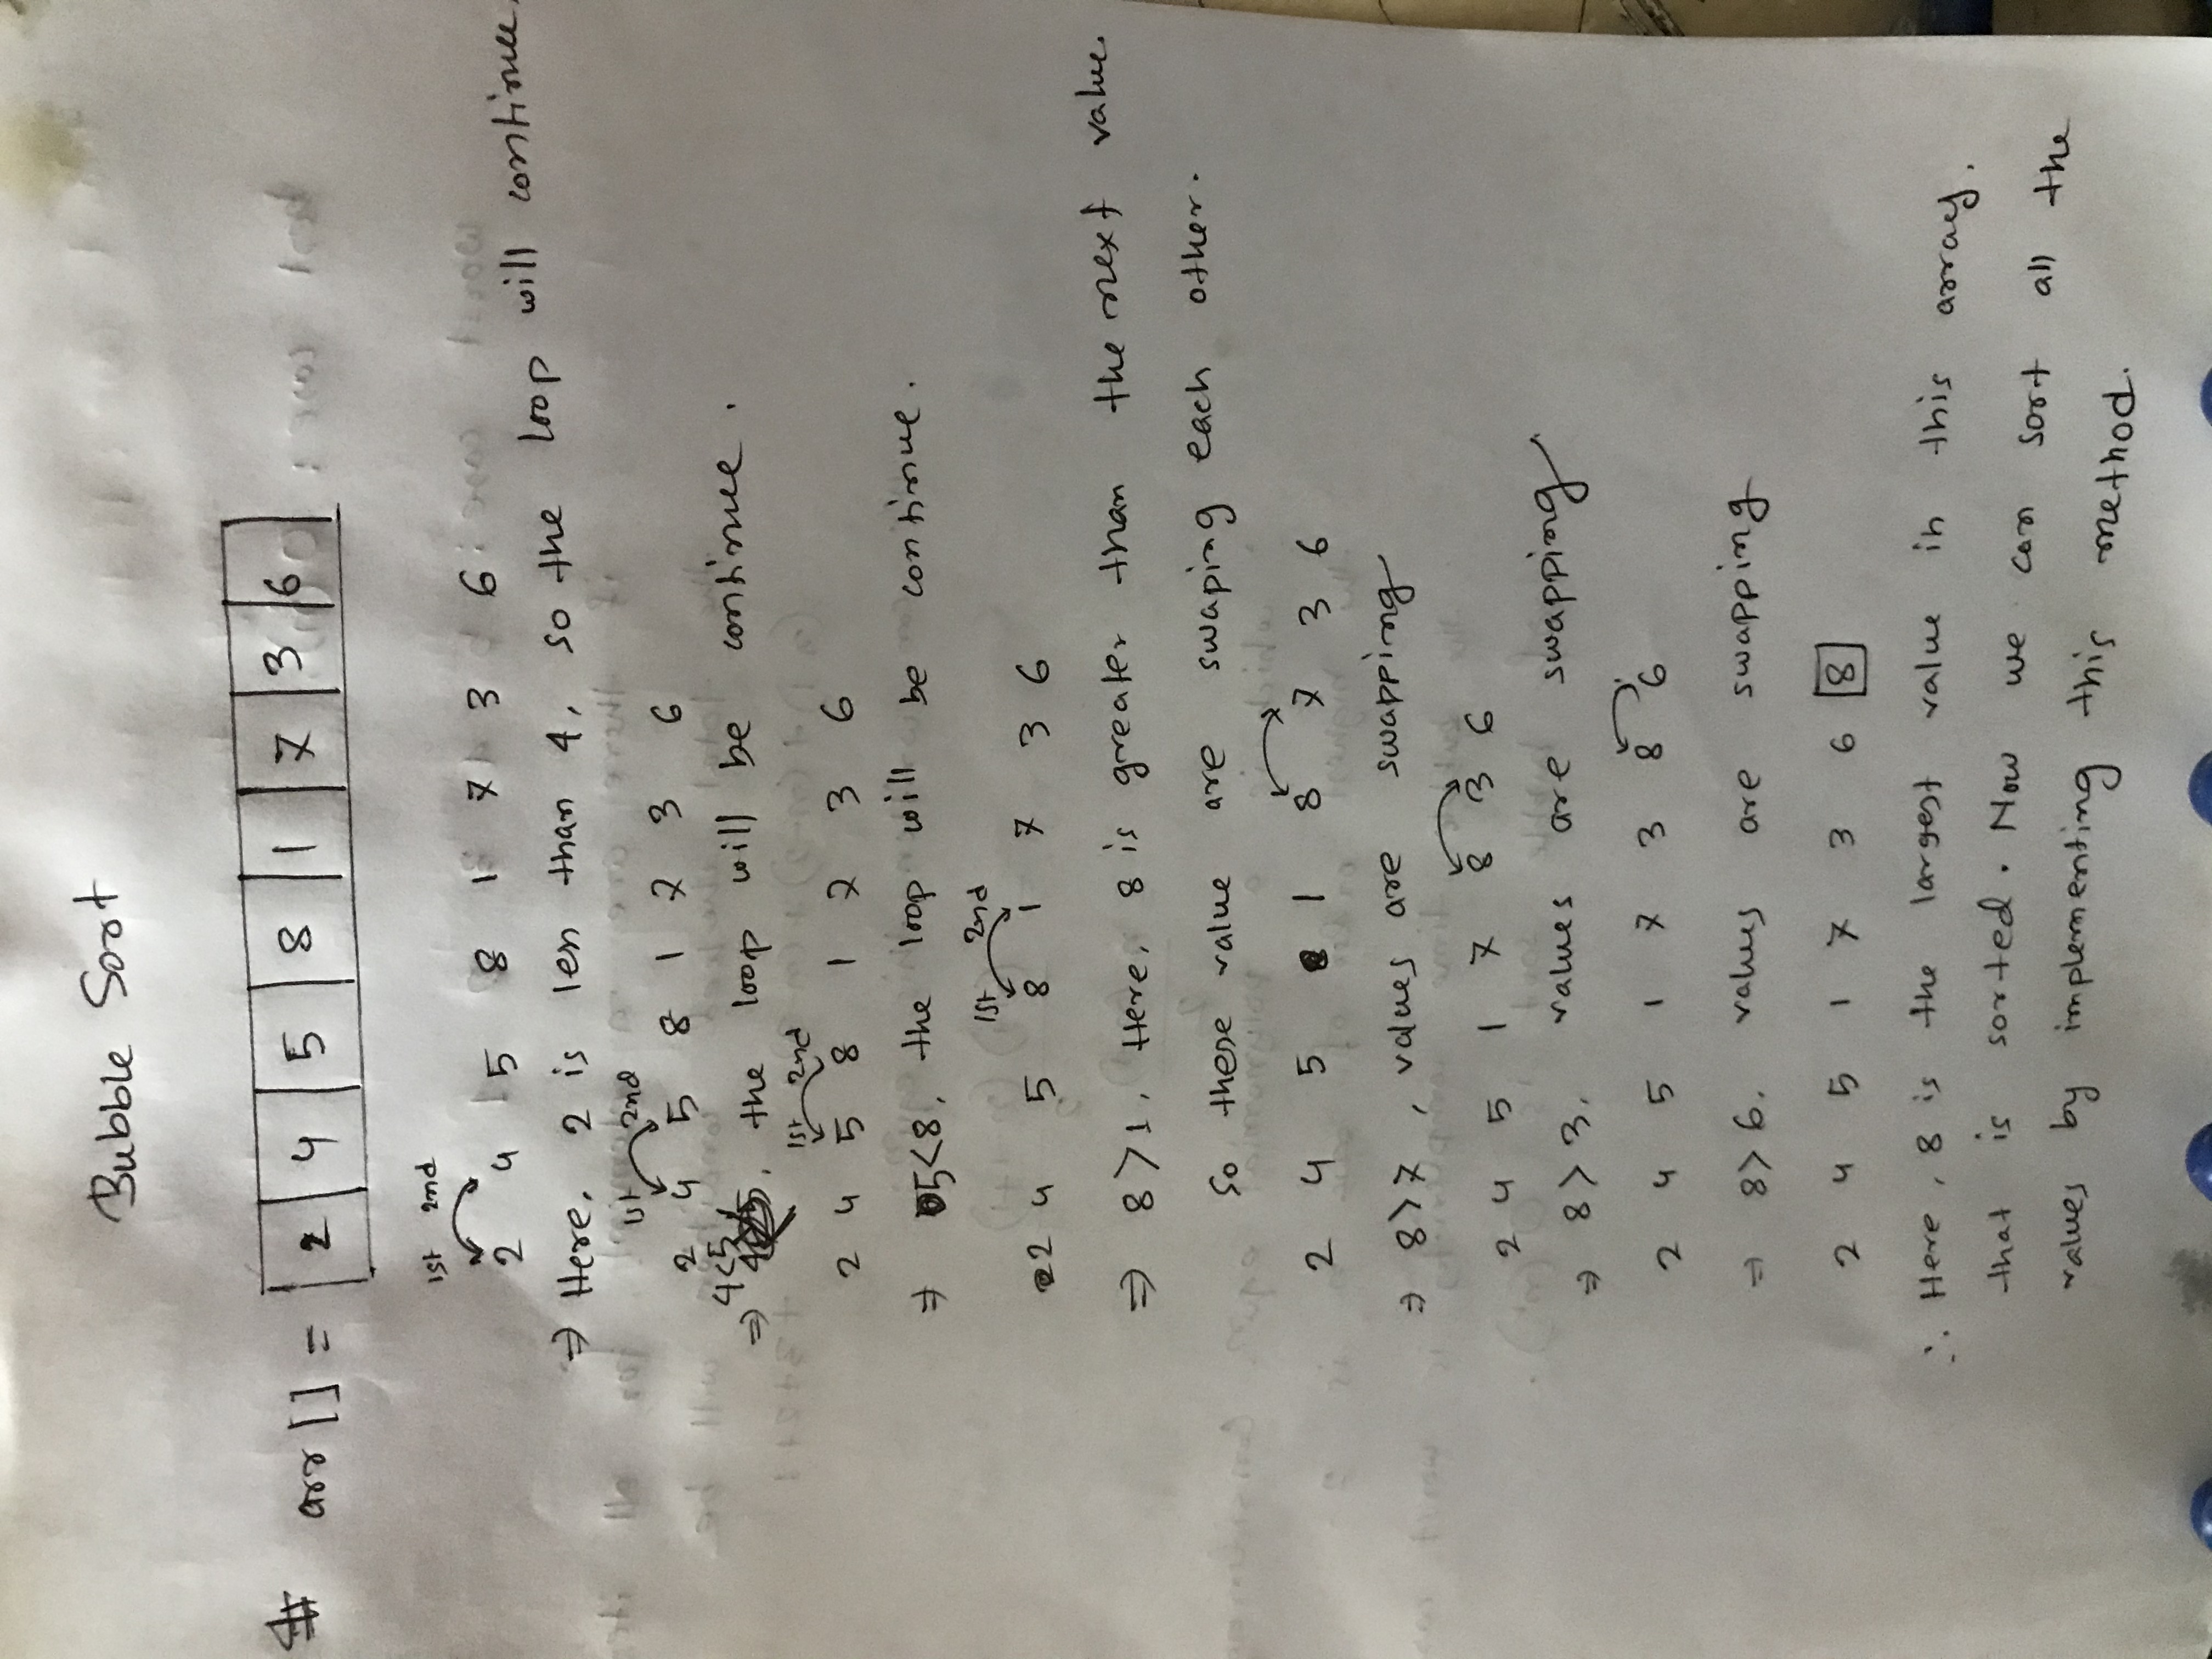 Bubble Sort
# arr [] = 2 4 5 8 1 7 3 6
1st 2nd
2 4 5 8 1 7 3 6
⇒ Here, 2 is less than 4, so the loop will continue.
1st 2nd
2 4 5 8 1 7 3 6
⇒ 4<5, the loop will be continue.
1st 2nd
2 4 5 8 1 7 3 6
⇒ 5<8, the loop will be continue.
1st 2nd
2 4 5 8 1 7 3 6
⇒ 8>1, Here, 8 is greater than the next value.
so these value are swaping each other.
2 4 5 1 8 7 3 6
⇒ 8>7, values are swapping
2 4 5 1 7 8 3 6
⇒ 8>3, values are swapping
2 4 5 1 7 3 8 6
⇒ 8>6. values are swapping
2 4 5 1 7 3 6 8
∴ Here, 8 is the largest value in this array,
that is sorted. Now we can sort all the
values by implementing this method.